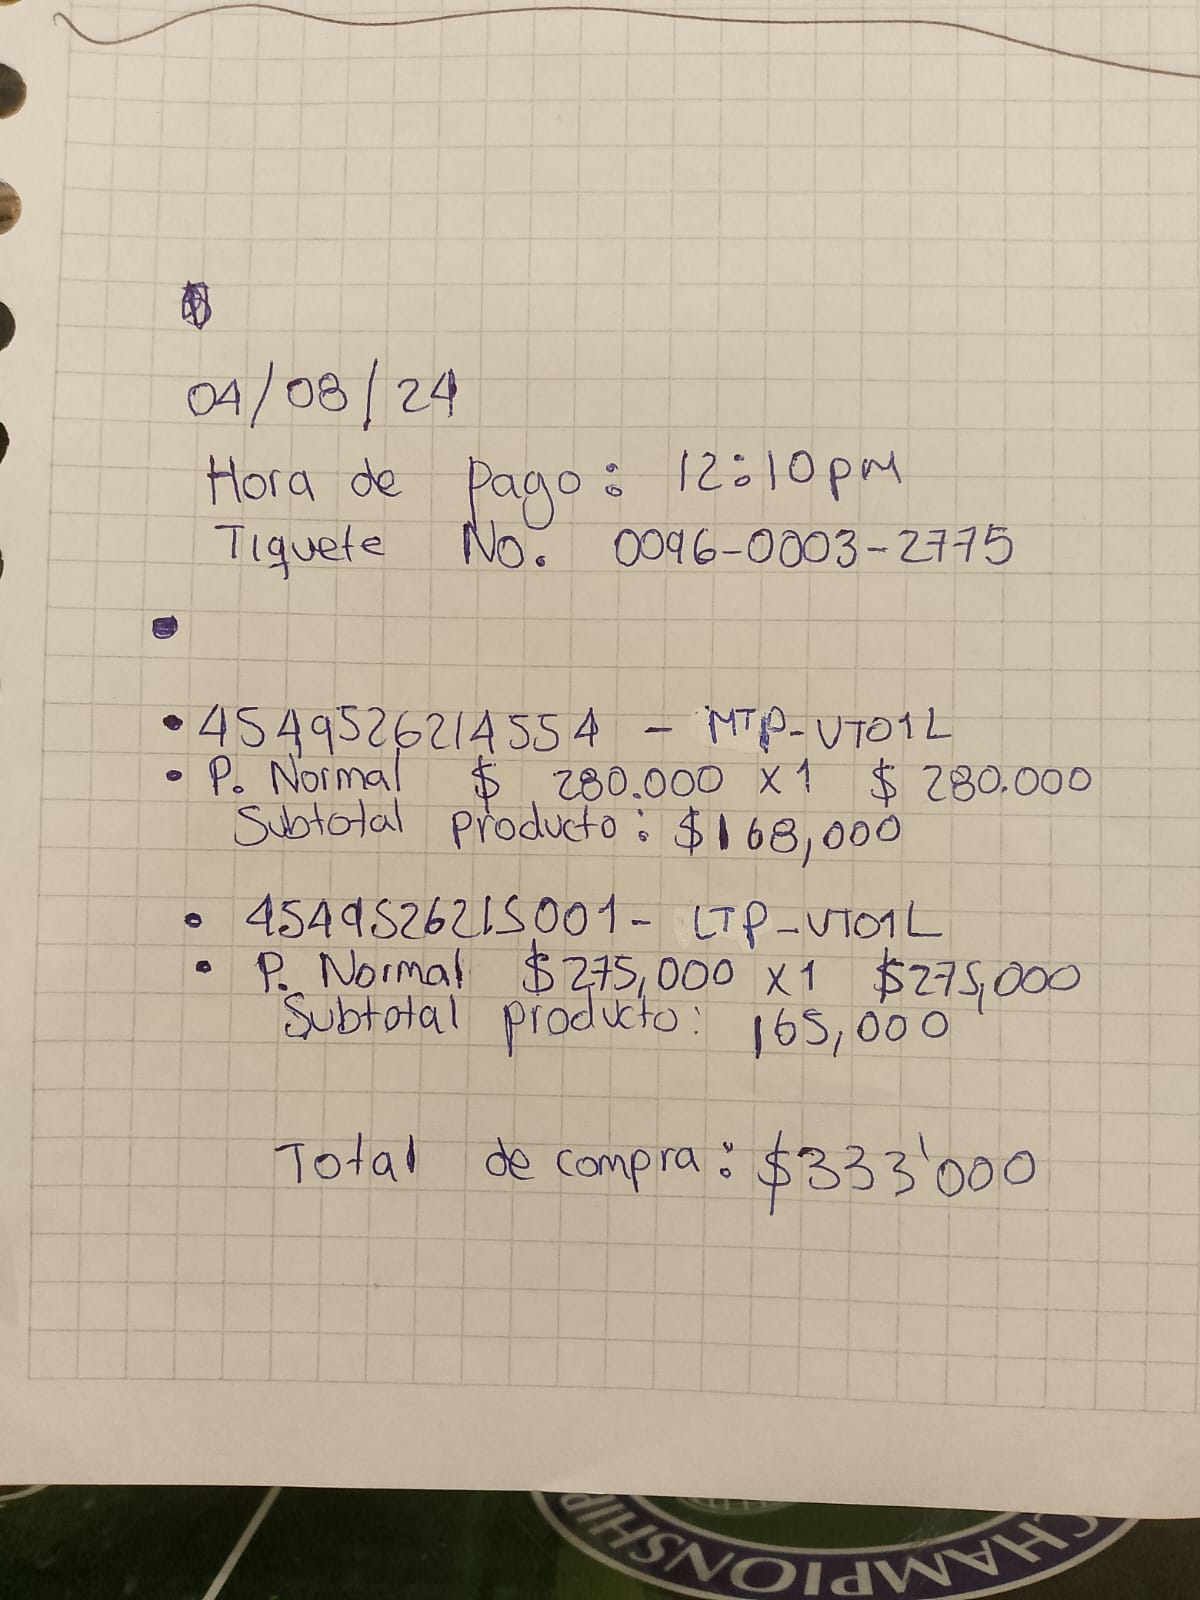 04/08/24
Hora de pago: 12:10pm
Tiquete No. 0096-0003-2775
• 4549526214554 - MTP-VT01L
• P. Normal $ 280.000 x1 $ 280.000
Subtotal producto: $168,000
• 4549526215001- LTP-VT01L
• P. Normal $275,000 x1 $275,000
Subtotal producto: 165,000
Total de compra: $333'000
CHAMPIONSHIP